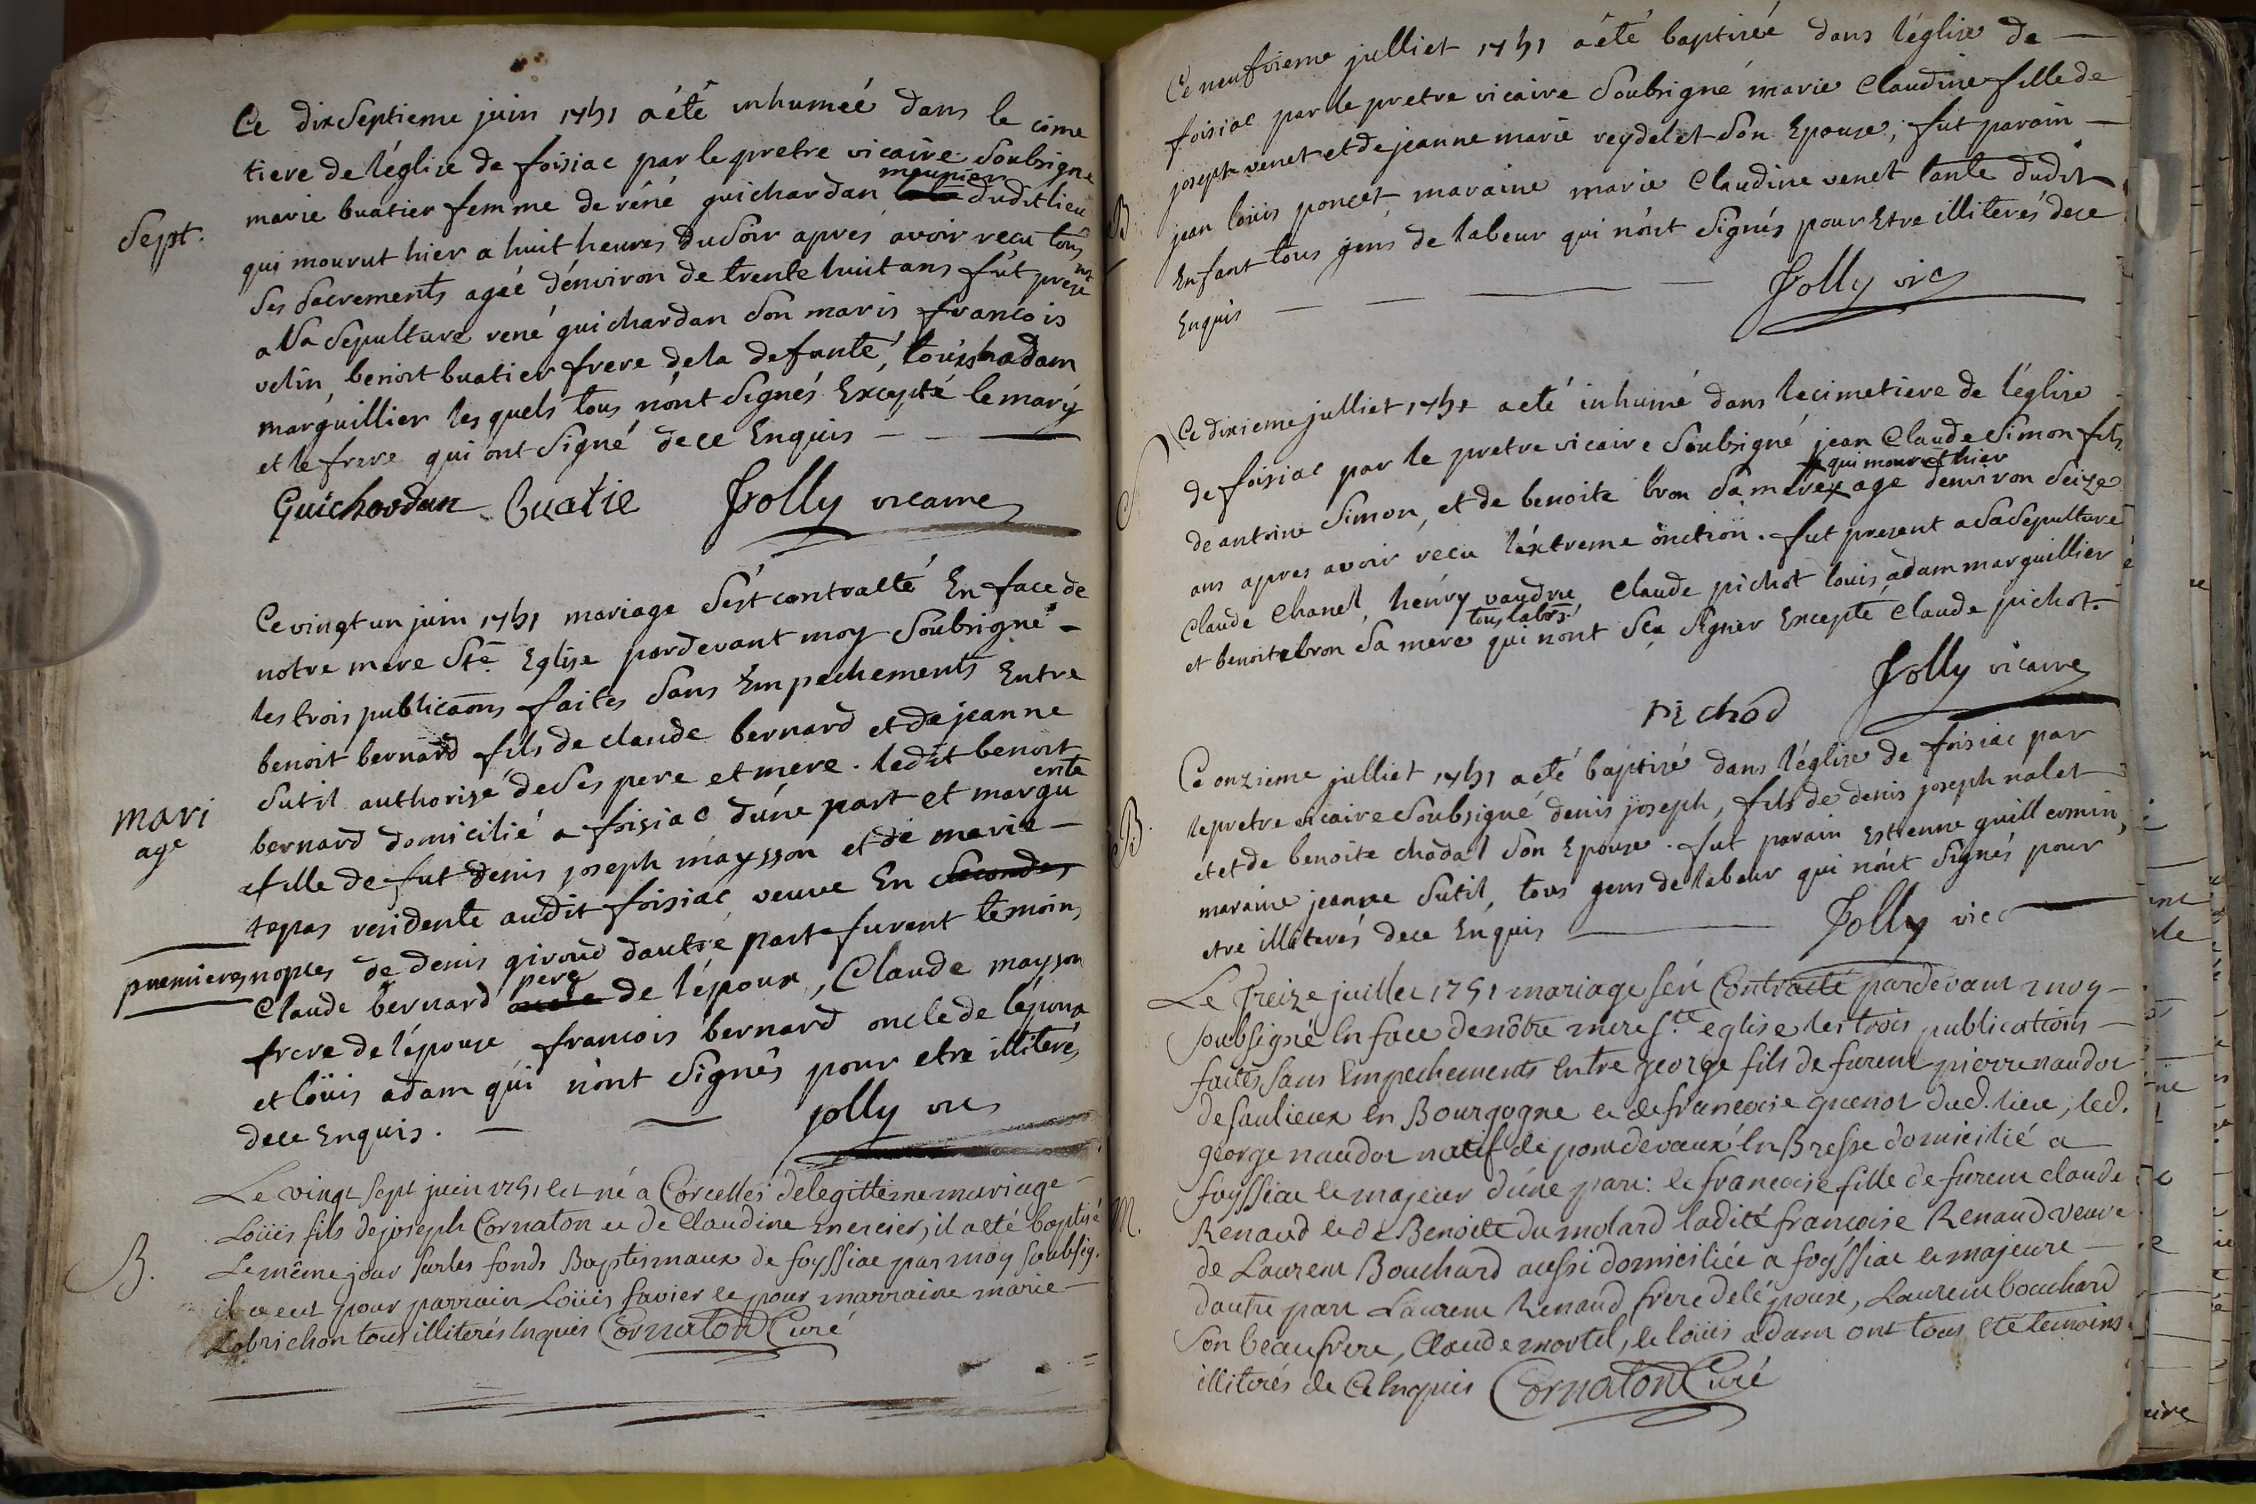 Ce dixseptieme juin 1751 a été inhumeé dans le cime
tiere de l'église de foisiac par le pretre vicaire Soubsigné
meunier
marie buatier femme de réné guichardan dudit lieu
Sept.
qui mourut hier a huit heures du Soir aprés avoir recu tous
Ses Sacrements ageé d'environ de trente huit ans fut prese
nt
a Sa Sepulture rené guichardan Son maris francois
velin, benoit buatier frere de la defunte, loüis adam
marguillier les quels tous n'ont Signés Excepté le mary
et le frere qui ont Signé de ce Enquis
Guichardan Buatie Jolly vicaire
Ce vingt un juin 1751 mariage S'est contracté En face de
notre mere Ste Eglise pardevant moy Soubsigné
les trois publicaons faites Sans Empechements Entre
benoit bernard fils de claude bernard et de jeanne
Sutil authorisé de Ses pere et mere. ledit benoit
mari
age
bernard domicilié a foisiac d'une part et margu
erite
fille de fut denis joseph maysson et de marie
tepas residente audit foisiac veuve En Secondes
premieres nopces de denis giroud dautre part furent temoins
pere
Claude bernard de l'époux, Claude maysson
frere de l'épouse francois bernard oncle de l'époux
et loüis adam qui n'ont Signés pour etre illiterés
de ce Enquis. jolly vic
Le vingt Sept juin 1751 est né a Corcelles de legittime mariage
Loüis fils de joseph Cornaton et de Claudine mercier, il a eté baptisé
B.
Le même jour Sur les fonds Baptismaux de foyssiac par moy soubsig.
il a eut pour parrain Loüis favier et pour marraine marie
Lobrichon tous illiterés Enquis Cornaton Curé
Ce neufvieme julliet 1751 a été baptiseé dans l'église de
foisiac par le pretre vicaire Soubsigné marie Claudine fille de
joseph venet et de jeanne marie reydelet Son Epouse, fut parain
B
jean loüis poncet maraine marie Claudine venet tante dudit
Enfant tous gens de labeur qui n'ont Signés pour Etre illiterés de ce
Enquis
Jolly vic
Ce dixieme julliet 1751 a eté inhumé dans le cimetiere de l'église
S
de foisiac par le pretre vicaire Soubsigné jean Claude Simon fils
qui mourut hier
de antoine Simon, et de benoite bron Sa mere agé d'environ Seize
ans apres avoir recu l'extreme onction. fut present a Sa Sepulture
Claude Chanel, henry vaudru Claude pichot louis adam marguillier
tous labrs
et benoite bron Sa mere qui n'ont Scu Signer Excepté Claude pichot
Jolly vicaire
Pichod
Ce onzieme julliet 1751 a eté baptisé dans l'église de foisiac par
B.
le pretre vicaire Soubsigné denis joseph, fils de denis joseph nalet
et et de benoite chadal Son Epouse. fut parain Estienne guillermin,
maraine jeanne Sutil, tous gens de labeur qui n'ont Signés pour
etre illiterés de ce Enquis Jolly vic
Le Treize juillet 1751 mariage s'est Contracté pardevant moy
soubsigné En face de nôtre mere Ste eglise les trois publications
faites sans Empechements Entre george fils de furent pierre naudot
de saulieux En Bourgogne et de francoise guenot dud. lieu, led.
george naudot natif de pondevaux En Bresse domicilié a
foyssiac le majeur d'une part: et francoise fille de furent claude
M.
Renaud et de Benoite dumolard ladite françoise Renaud veuve
de Laurent Bouchard aussi domiciliée a foyssiac et majeure
d'autre part Laurent Renaud frere de l'épouse, Laurent bouchard
son beaufrere, Claude mortel, et loüis adam ont tous eté temoins
illiterés de ce Enquis Cornaton Curé